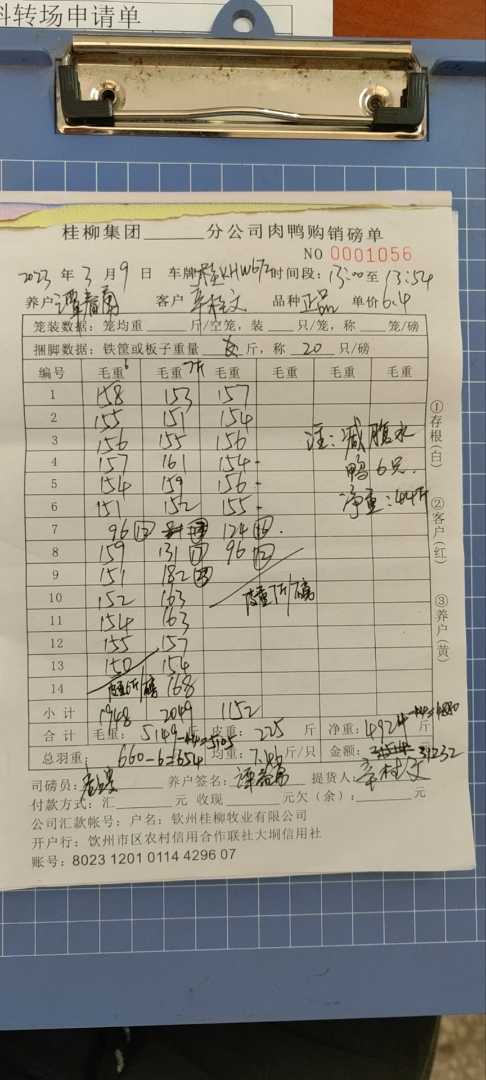 料转场申请单
桂柳集团______分公司肉鸭购销磅单
NO 0001056
2023 年 3 月 9 日 车牌 桂KHW672 时间段:13:00至 13:54
养户 客户 品种 正品 单价 6.4
笼装数据:笼均重______斤/空笼,装______只/笼,称______笼/磅
捆脚数据:铁筐或板子重量 斤,称 20 只/磅
编号 毛重 6 毛重 7斤 毛重 毛重 毛重 毛重
1 158 153 157
2 155 151 154
3 156 155 156
4 157 161 154
5 154 159 156
6 151 152 155
7 96 12 124
8 159 131 96 12
9 151 182
10 152 163
11 154 163
12 155 157
13 150 154
14 皮重6斤/磅 168
皮重7斤/磅
注:减腹水
鸭6只.
净重:44斤
小计 1948 2049 1152
合计 毛重: 5149-44=5105 皮重: 225 斤 净重: 4924-44=4880 斤
总羽重: 660-6=654 均重: 7.46 斤/只 金额: 31232
司磅员: 养户签名: 提货人:
付款方式:汇______元 收现______元欠(余):______元
公司汇款帐号:户名:钦州桂柳牧业有限公司
开户行:钦州市区农村信用合作联社大垌信用社
账号:8023 1201 0114 4296 07
①存根(白)
②客户(红)
③养户(黄)